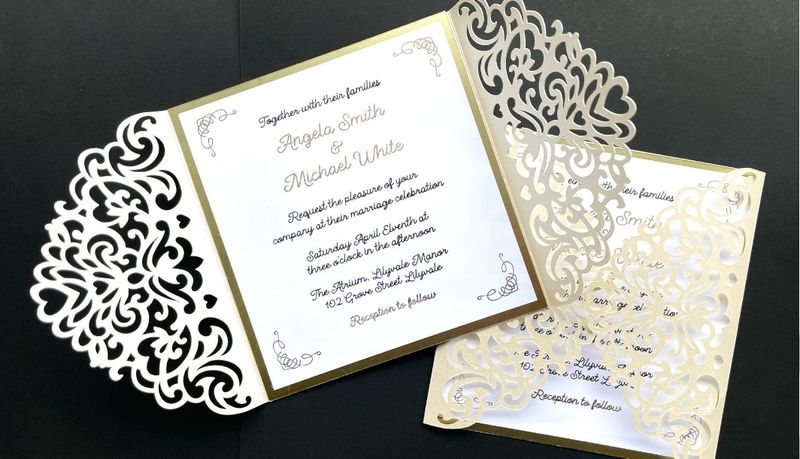 Together with their families
Angela Smith
&
Michael White
Request the pleasure of your
company at their marriage celebration
Saturday April Elventh at
three o'clock in the afternoon
The Atrium, Lilyvale Manor
102 Grove Street Lilyvale
Reception to follow
their families
Smith
Street
Reception to follow